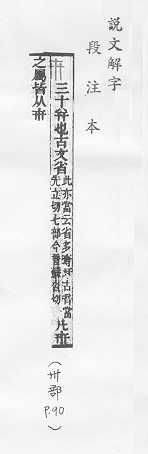 說文解字
段注本
三十幷也古文省
此亦當云省多
古音當
先立切七部今音蘇沓切
凡卅
之屬皆从卅
(卅部 P.90)